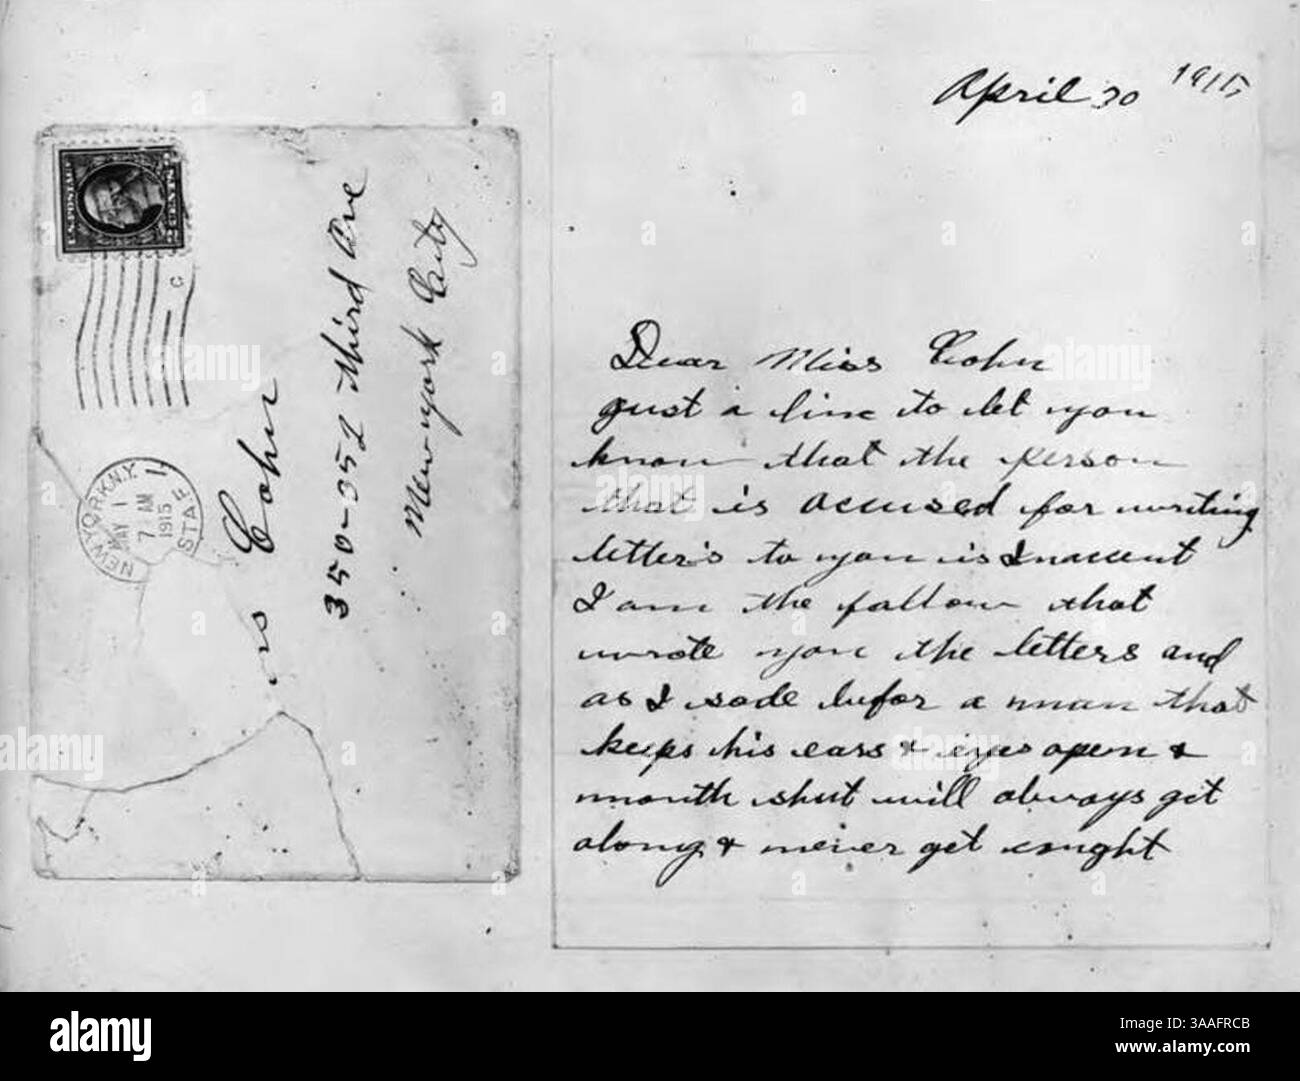 April 30 1915
U.S. POSTAGE
2 CENTS 2
C
NEW YORK, N.Y. 1
MAY 1
7 AM
1915
STA F
Cohn
350-352 Third Ave
Newyork City
Dear Miss Cohn
just a line to let you
know that the person
that is accused for writing
letter's to you is Innacent
I am the fallow that
wrote you the letters and
as I sade befor a man that
keeps his ears & eyes open &
mouth shut will always get
along & never get caught
a alamy
Image ID: 3AAFRCB
www.alamy.com